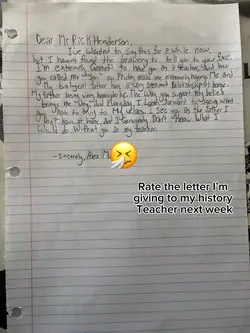 Dear Mr Rick Henderson,
I've wanted to say this for a while now,
but I havent found the bravery to tell you to your face.
I'm Extremely Grateful to have you as a teacher, and how
you called me "Son" on Friday made me extremely happy. Me and
My biological father have a very strained Relationship at home
My father being very homophobic. The Way you support my beliefs
brings me Joy and Everyday I Look forward to seeing what
you have to bring to My class. I see you as the father I
Don't have at home, and I genuinely Don't Know What I
Would do without you as my teacher.
-Sincerely, Alex M.
Rate the letter I'm
giving to my history
Teacher next week